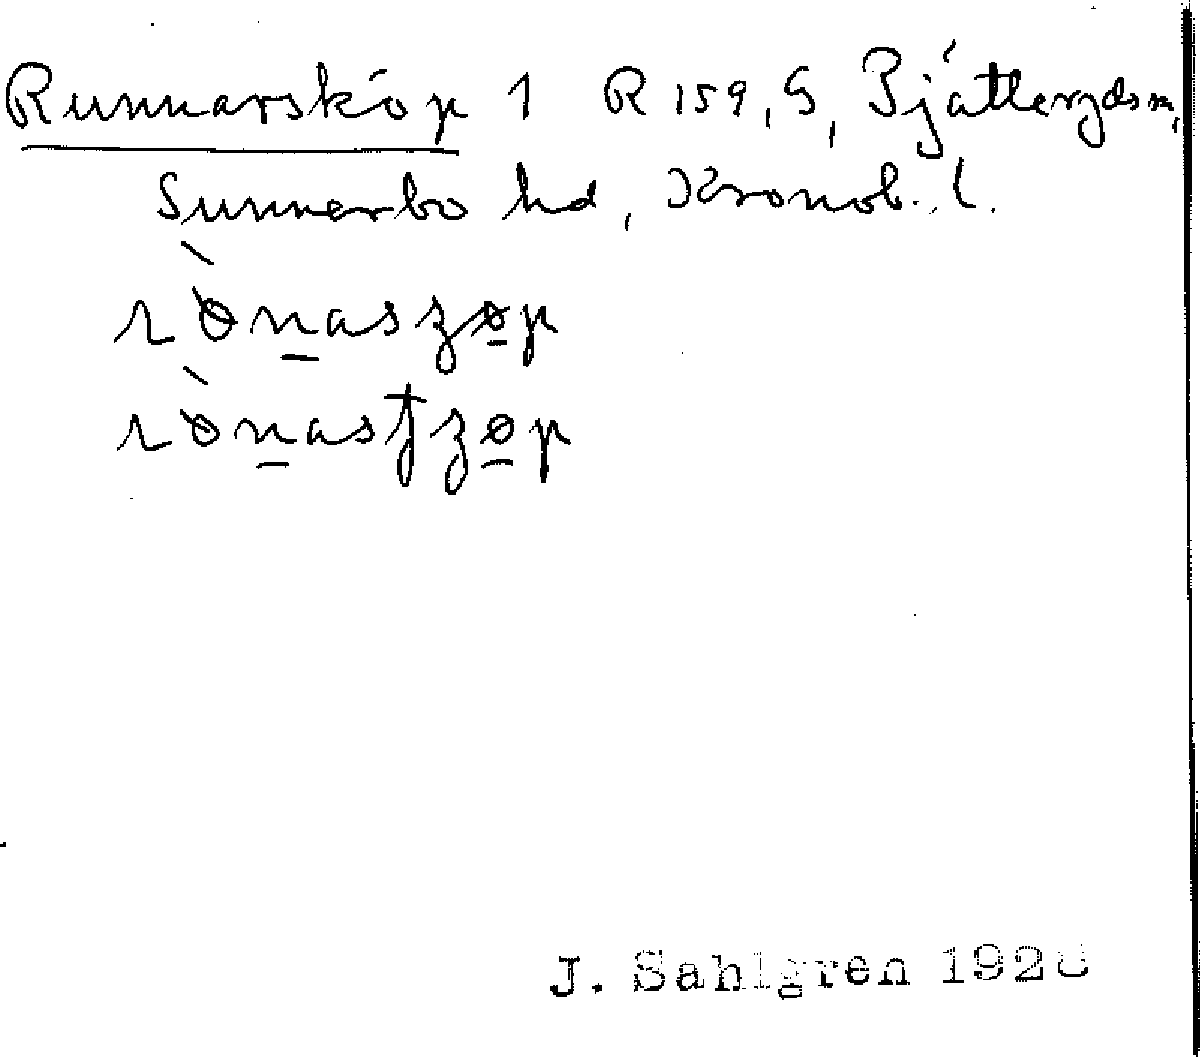 Runnarsköp 1 R 159, G, Pjätteryds sn,
Sunnerbo hd, Kronob. l.
rònaszøp
rònasʃzøp
J. Sahlgren 1928